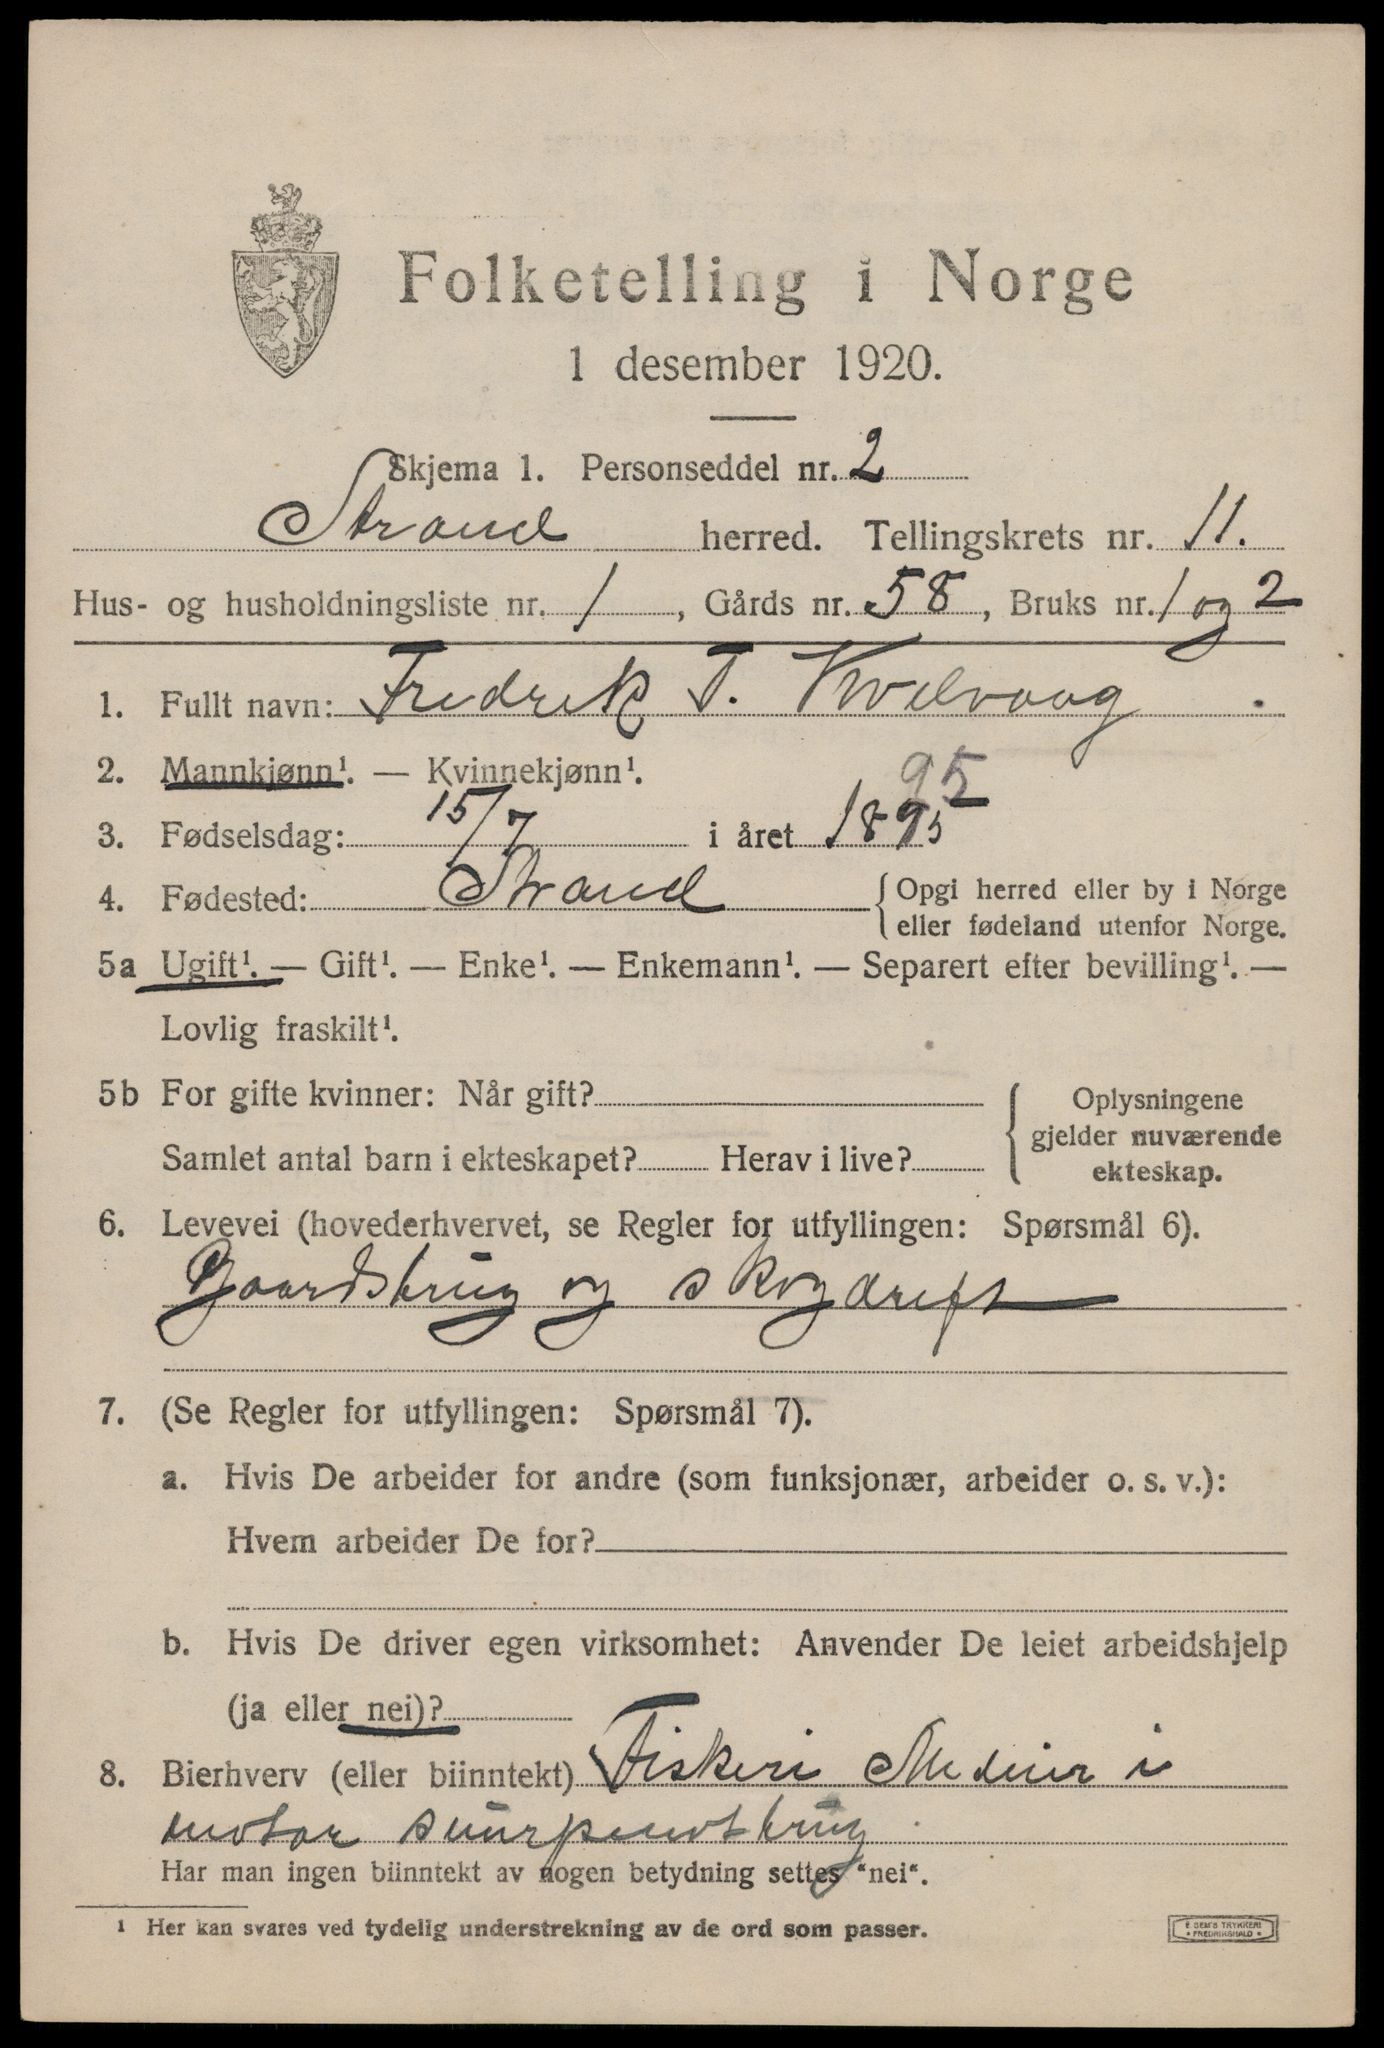 Folketelling i Norge
1 desember 1920.
Skjema 1. Personseddel nr. 2
Strand herred. Tellingskrets nr. 11.
Hus- og husholdningsliste nr. 1, Gårds nr. 58, Bruks nr. 1 og 2
1. Fullt navn: Fredrik T. Kvelvaag
2. Mannkjønn¹. — Kvinnekjønn¹.
95
3. Fødselsdag: 15/7 i året 1895
4. Fødested: Strand {Opgi herred eller by i Norge
eller fødeland utenfor Norge.
5a Ugift¹. — Gift¹. — Enke¹. — Enkemann¹. — Separert efter bevilling¹. —
Lovlig fraskilt¹.
5b For gifte kvinner: Når gift? Oplysningene
gjelder nuværende
Samlet antal barn i ekteskapet? Herav i live? ekteskap.
6. Levevei (hovederhvervet, se Regler for utfyllingen: Spørsmål 6).
Gaardsbrug og skogdrift
7. (Se Regler for utfyllingen: Spørsmål 7).
a. Hvis De arbeider for andre (som funksjonær, arbeider o. s. v.):
Hvem arbeider De for?
b. Hvis De driver egen virksomhet: Anvender De leiet arbeidshjelp
(ja eller nei)?
8. Bierhverv (eller biinntekt) Fiskeri Medeier i
motor snurpenotbrug
Har man ingen biinntekt av nogen betydning settes "nei".
¹ Her kan svares ved tydelig understrekning av de ord som passer.
E SEM'S TRYKKERI
* FREDRIKSHALD *